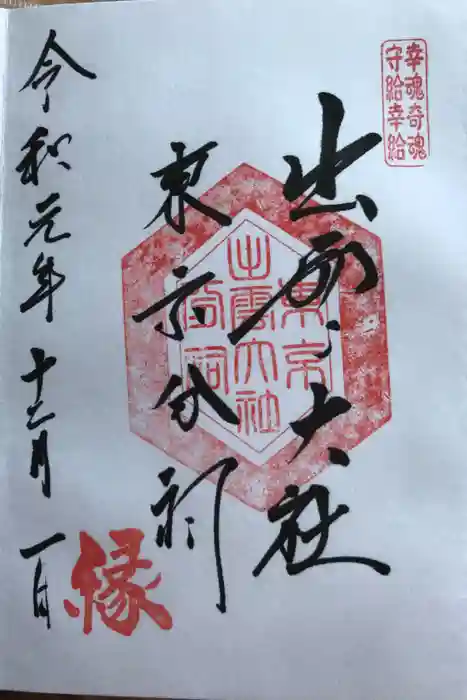 幸魂奇魂
守給幸給
出雲大社
東京分祠
東京
出雲大社
分祠
令和元年十二月一日
縁